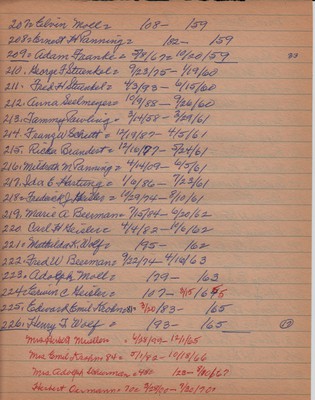 207 = Edwin Moll = 108 - 159
208 = Ernest H Panning = 182 - 159
209 = Adam Franke = 7/8/67 = 10/20/59
210. George F Stuenkel = 9/23/75 - 1/19/60
211. Fred H Stuenkel = 4/3/93 - 6/15/60
212. Anna Seelmeyer = 10/9/88 - 9/26/60
213. Tammy Pawling = 3/14/58 - 3/29/61
214. Franz W Schutt = 12/19/87 - 4/5/61
215. Ricka Brandert = 12/10/77 - 5/24/61
216. Mildreth M. Panning = 4/14/09 - 6/5/61
217. Ida E. Hartung = 1/6/86 - 7/23/61
218 = Fredrick J Geisler = 10/29/74 - 9/10/61
219. Marie A Beerman = 7/15/84 - 6/20/62
220. Carl H Geisler = 4/4/82 - 10/6/62
221. Mathilda K. Wolf = 195 - 162
222. Fred W Beerman = 9/22/74 - 4/10/63
223. Adolph Moll = 179 - 163
224. Erwin C Geisler = 107 - 3/15/65
225. Edward Emil Krohn = 3/20/83 - 165
226. Henry J. Wolf = 193 - 165
Mrs Mueller = 4/28/09 - 12/1/65
Mrs Emil Krohn 84 = 5/1/82 - 10/18/66
Mrs Adolph
Herbert